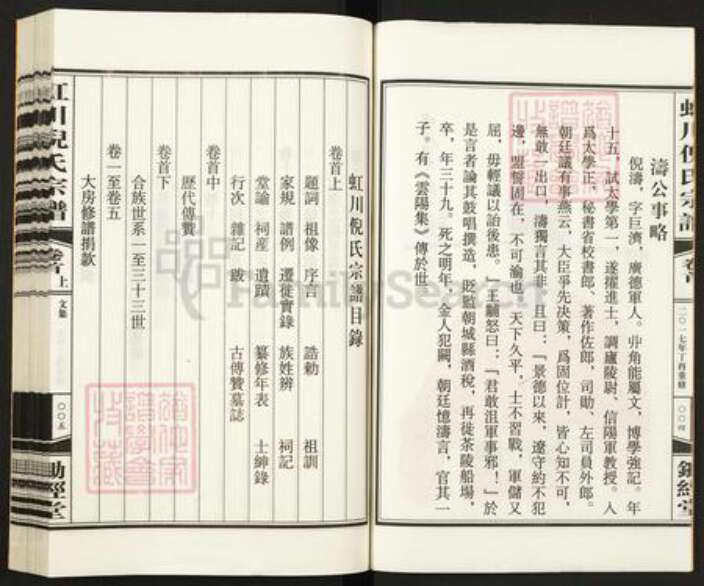 虹川倪氏宗譜
二〇一七年丁酉重修
〇〇四
濤公事略
倪濤，字巨濟，廣德軍人。丱角能屬文，博學強記。年
十五，試太學第一，遂擢進士，調廬陵尉、信陽軍教授。入
爲太學正，秘書省校書郎、著作佐郎，司勛、左司員外郎。
朝廷議有事燕云，大臣爭先决策，爲固位計，皆心知不可，
無敢一出口，濤獨言其非，且曰：『景德以來，遼守約不犯
邊，盟誓固在，不可渝也。天下久平，士不習戰，軍儲又
屈，毋輕議以詒後患。』王黼怒曰：『君敢沮軍事邪！』於
是言者論其鼓唱撰造，貶監朝城縣酒稅，再徙茶陵船場，
卒，年三十九。死之明年，金人犯闕，朝廷憶濤言，官其一
子。有《雲陽集》傳於世
虹川倪氏宗譜目錄
卷首上
題詞 祖像 序言 誥勅 祖訓
家規 譜例 遷徙實錄 族姓辨 祠記
堂論 祠産 遺蹟 纂修年表 士紳錄
行次 雜記 跋 古傳贊墓誌
卷首中
歷代傳贊
卷首下
合族世系一至三十三世
卷一至卷五
大房修譜捐款
虹川倪氏宗譜
卷首上
文集
〇〇五
勛經堂
FamilySearch